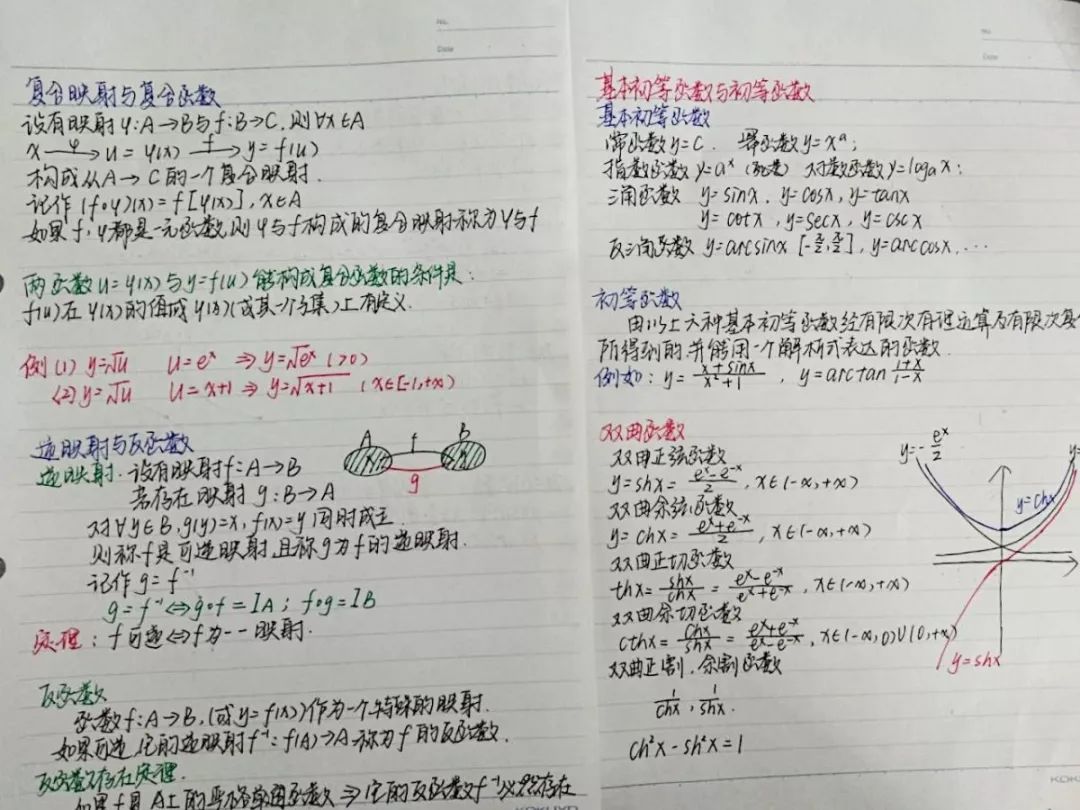 No.
Date
复合映射与复合函数
设有映射φ:A→B与f:B→C,则∀x∈A
x —φ→ u=φ(x) —f→ y=f(u)
构成从A→C的一个复合映射.
记作(f∘φ)(x)=f[φ(x)],x∈A
如果f,φ都是一元函数,则φ与f构成的复合映射称为φ与f
两函数u=φ(x)与y=f(u)能构成复合函数的条件是:
f(u)在φ(x)的值域φ(A)(或其一个子集)上有定义.
例(1) y=√u u=eˣ ⇒ y=√eˣ (>0)
(2) y=√u u=x+1 ⇒ y=√(x+1) (x∈[-1,+∞)
逆映射与反函数
逆映射.设有映射f:A→B
若存在映射g:B→A
对∀y∈B,g(y)=x,f(x)=y同时成立.
则称f是可逆映射,且称g为f的逆映射.
记作g=f⁻¹
g=f⁻¹⇔g∘f=IA; f∘g=IB
定理:f可逆⇔f为一一映射.
A f B
g
反函数
函数f:A→B,(或y=f(x))作为一个特殊的映射.
如果可逆,它的逆映射f⁻¹:f(A)→A称为f的反函数.
反函数存在定理.
如果f是A上的严格单调函数⇒它的反函数f⁻¹必然存在
KOKUYO
No.
Date
基本初等函数与初等函数
基本初等函数
常函数y=C. 幂函数y=xᵃ;
指数函数y=aˣ 对数函数y=logₐx;
三角函数 y=sinx, y=cosx, y=tanx
y=cotx, y=secx, y=cscx
反三角函数 y=arcsinx [-π/2,π/2], y=arccosx, ...
初等函数
由以上六种基本初等函数经有限次有理运算及有限次复
所得到的并能用一个解析式表达的函数.
例如: y=(x+sinx)/(x²+1), y=arctan (1+x)/(1-x)
双曲函数
双曲正弦函数
y=shx=(eˣ-e⁻ˣ)/2, x∈(-∞,+∞)
双曲余弦函数
y=chx=(eˣ+e⁻ˣ)/2, x∈(-∞,+∞)
双曲正切函数
thx=shx/chx=(eˣ-e⁻ˣ)/(eˣ+e⁻ˣ), x∈(-∞,+∞)
双曲余切函数
cthx=chx/shx=(eˣ+e⁻ˣ)/(eˣ-e⁻ˣ), x∈(-∞,0)∪(0,+∞)
双曲正割,余割函数
1/chx, 1/shx.
ch²x-sh²x=1
y=-eˣ/2
y=
y=chx
y=shx
KOKU